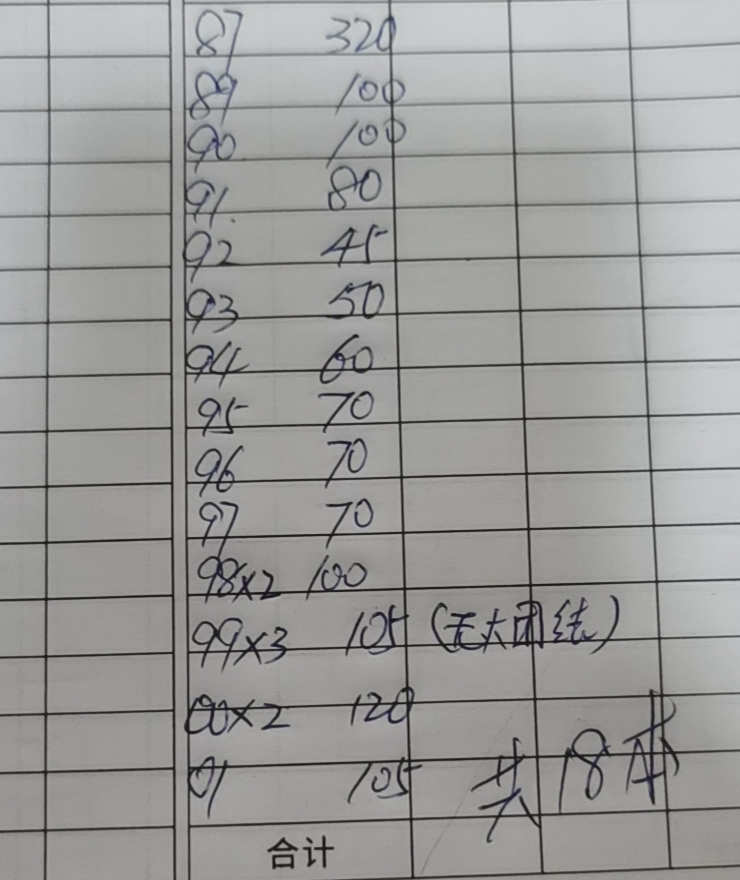 87 320
89 100
90 100
91 80
92 45
93 50
94 60
95 70
96 70
97 70
98×2 100
99×3 105 (无大闭结)
00×2 120
01 105
共18本
合计